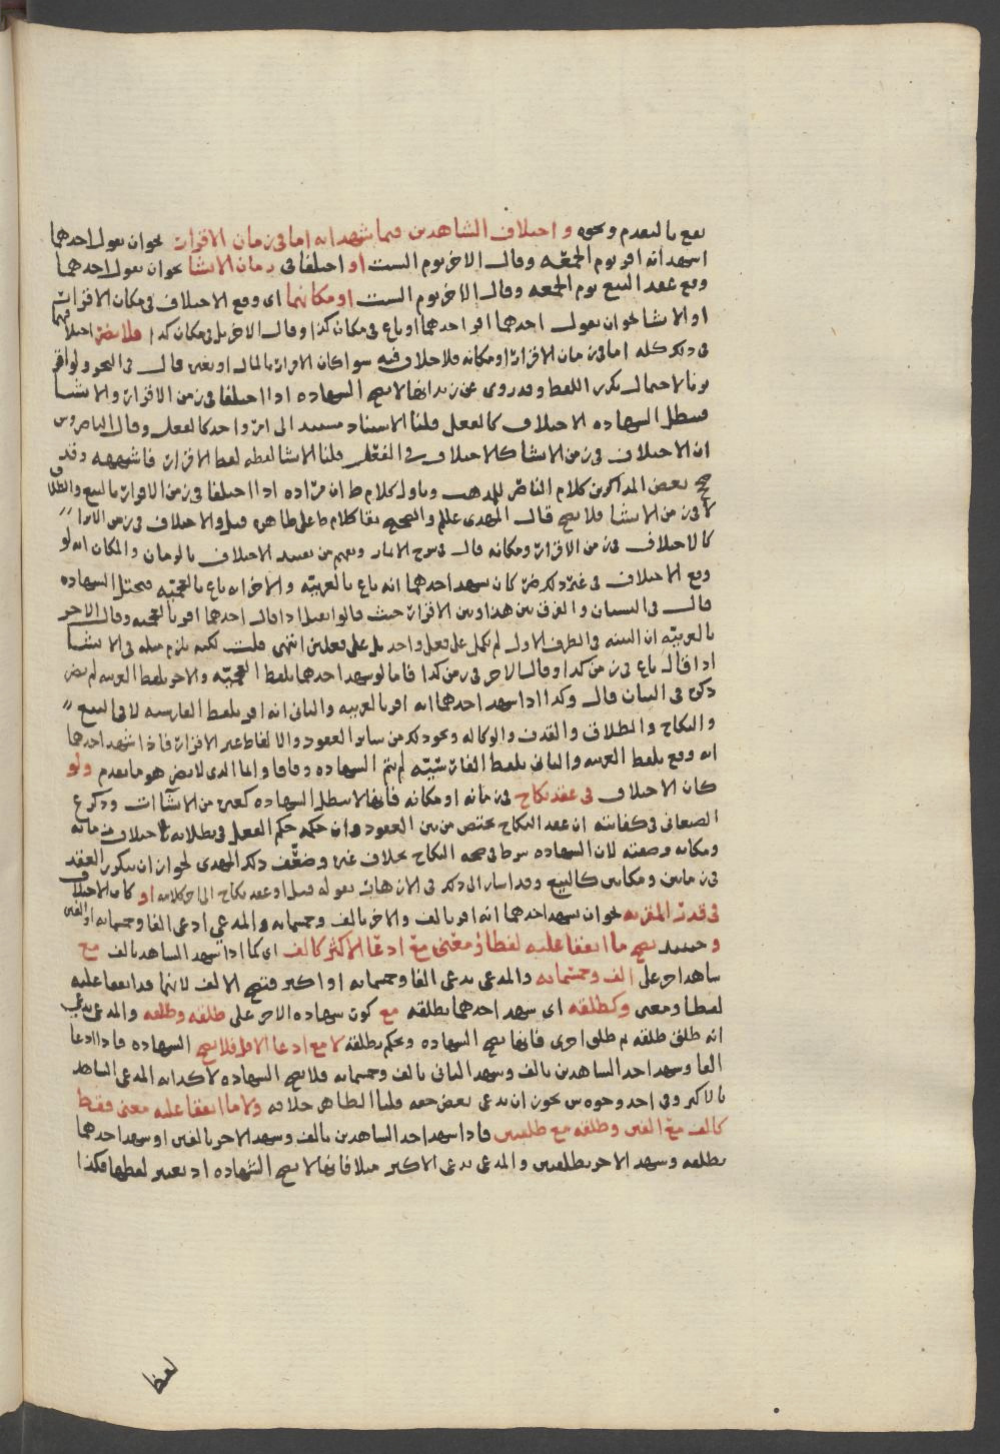 يقع بالتقدم ونحوه و اختلاف الشاهدين فيما شهدا به اما في زمان الاقرار نحو ان يقول احدهما
اشهد انه اقر يوم الجمعه وقال الاخر يوم السبت او اختلفا في زمان الانشا نحو ان يقول احدهما
وقع عقد البيع يوم الجمعه وقال الاخر يوم السبت او مكانهما اى وقع الاختلاف في مكان الاقرار
او الانشا نحو ان يقول احدهما اقر احدهما او باع في مكان كذا وقال الاخر بل في مكان كذا فلا يضر اختلافهما
في ذلك كله اما في زمان الاقرار او مكانه فلا خلاف فيه سوا كان الاقرار بالمال او بغيره قال في البحر
لاحتمال تكرر اللفظ وقد روى عن زيد انها لا تصح الشهاده اذا اختلفا في زمن الاقرار والانشا
فتبطل الشهاده الاختلاف كالفعل قلنا الاسناد مستند الى امر واحد كالفعل وقال الناصر وس
ان الاختلاف في زمن الانشا كالاختلاف في الفعل قلنا الانشا لفظه لفظ الاقرار فاشبهه وقد
صحح بعض المذاكرين كلام الناصر للمذهب وتاول كلام ط ان مراده اذا اختلفا في زمن الاقرار بالبيع والطلاق
لا في زمن الانشا فلا يصح قال المهدى عللم والصحيح بقا كلام ط على ظاهره قيل والاختلاف في زمن الابرا
كالاختلاف في زمن الاقرار ومكانه قال في شرح الاثمار ويفهم من تقييد الاختلاف بالزمان والمكان انه لو
وقع الاختلاف في غير ذلك ضر كان يشهد احدهما انه باع بالعربيه والاخر انه باع بالعجميه فتختل الشهاده
قال في البستان والفرق بين هذا وبين الاقرار حيث قالوا يقبل اذا قال احدهما اقر بالعجميه وقال الاخر
بالعربيه ان البينه في الطرف الاول لم تكمل على فعل واحد بل على فعلين انتهى قلت لكنه يلزم مثله في الانشا
اذا قال باع في زمن كذا وقال الاخر في زمن كذا فاما لو شهد احدهما بلفظ العجميه والاخر بلفظ العربيه لم يضر
ذكره في البيان قال وكذا اذا شهد احدهما انه اقر بالعربيه والثاني انه اقر بلفظ الفارسيه لا في البيع
والنكاح والطلاق والقذف والوكاله ونحو ذلك من سائر العقود والالفاظ غير الاقرار فاذا شهد احدهما
انه وقع بلفظ العربيه والثاني بلفظ الفارسيه لم يتم الشهاده وفاقا وانما الذى لا يضر هو ما تقدم ولو
كان الاختلاف في عقد نكاح في زمانه او مكانه فانها لا تبطل الشهاده كغيره من الانشاآت وذكر ع
الصعاني في كفايته ان عقد النكاح يختص من بين العقود وان حكمه حكم الفعل في بطلانه باختلاف زمانه
ومكانه وصفته لان الشهاده شرط في صحه النكاح بخلاف غيره وضعف ذلك المهدى لجواز ان يتكرر العقد
في زمانين ومكانين كالبيع وقد اشار الى ذلك في الازهار بقوله قيل او عقد نكاح الى اخر كلامه او كان الاختلاف
في قدر المقر به نحو ان يشهد احدهما انه اقر بالف والاخر بالف وخمسمائه والمدعي ادعى الفا وخمسمائه او الفين
وحينئذ يصح ما اتفقا عليه لفظا ومعنى مع ادعا الاكثر كالف اى كما اذا شهد الشاهد بالف مع
شاهد اخر على الف وخمسمائه والمدعى يدعى الفا وخمسمائه او اكثر فتصح الالف لانهما قد اتفقا عليه
لفظا ومعنى وكطلقه اى شهد احدهما بطلقه مع كون شهاده الاخر على طلقه وطلقه والمدعى يدعى
انه طلق طلقه ثم طلق اخرى فانها تصح الشهاده ويحكم بطلقه لا مع ادعا الاقل فلا تصح الشهاده فاذا ادعا
الفا وشهد احد الشاهدين بالف وشهد الثاني بالف وخمسمائه فلا تصح الشهاده لاكذابه المدعى الشاهد
بالاكثر وفي احد وجوه س يجوز ان يدعى بعض حقه قلنا الظاهر خلافه ولا ما اتفقا عليه معنى فقط
كالف مع الفين وطلقه مع طلقتين فاذا شهد احد الشاهدين بالف وشهد الاخر بالفين او شهد احدهما
بطلقه وشهد الاخر بطلقتين والمدعى يدعى الاكثر مثلا فانها لا تصح الشهاده اذ تغير لفظها فكذا
لفظا